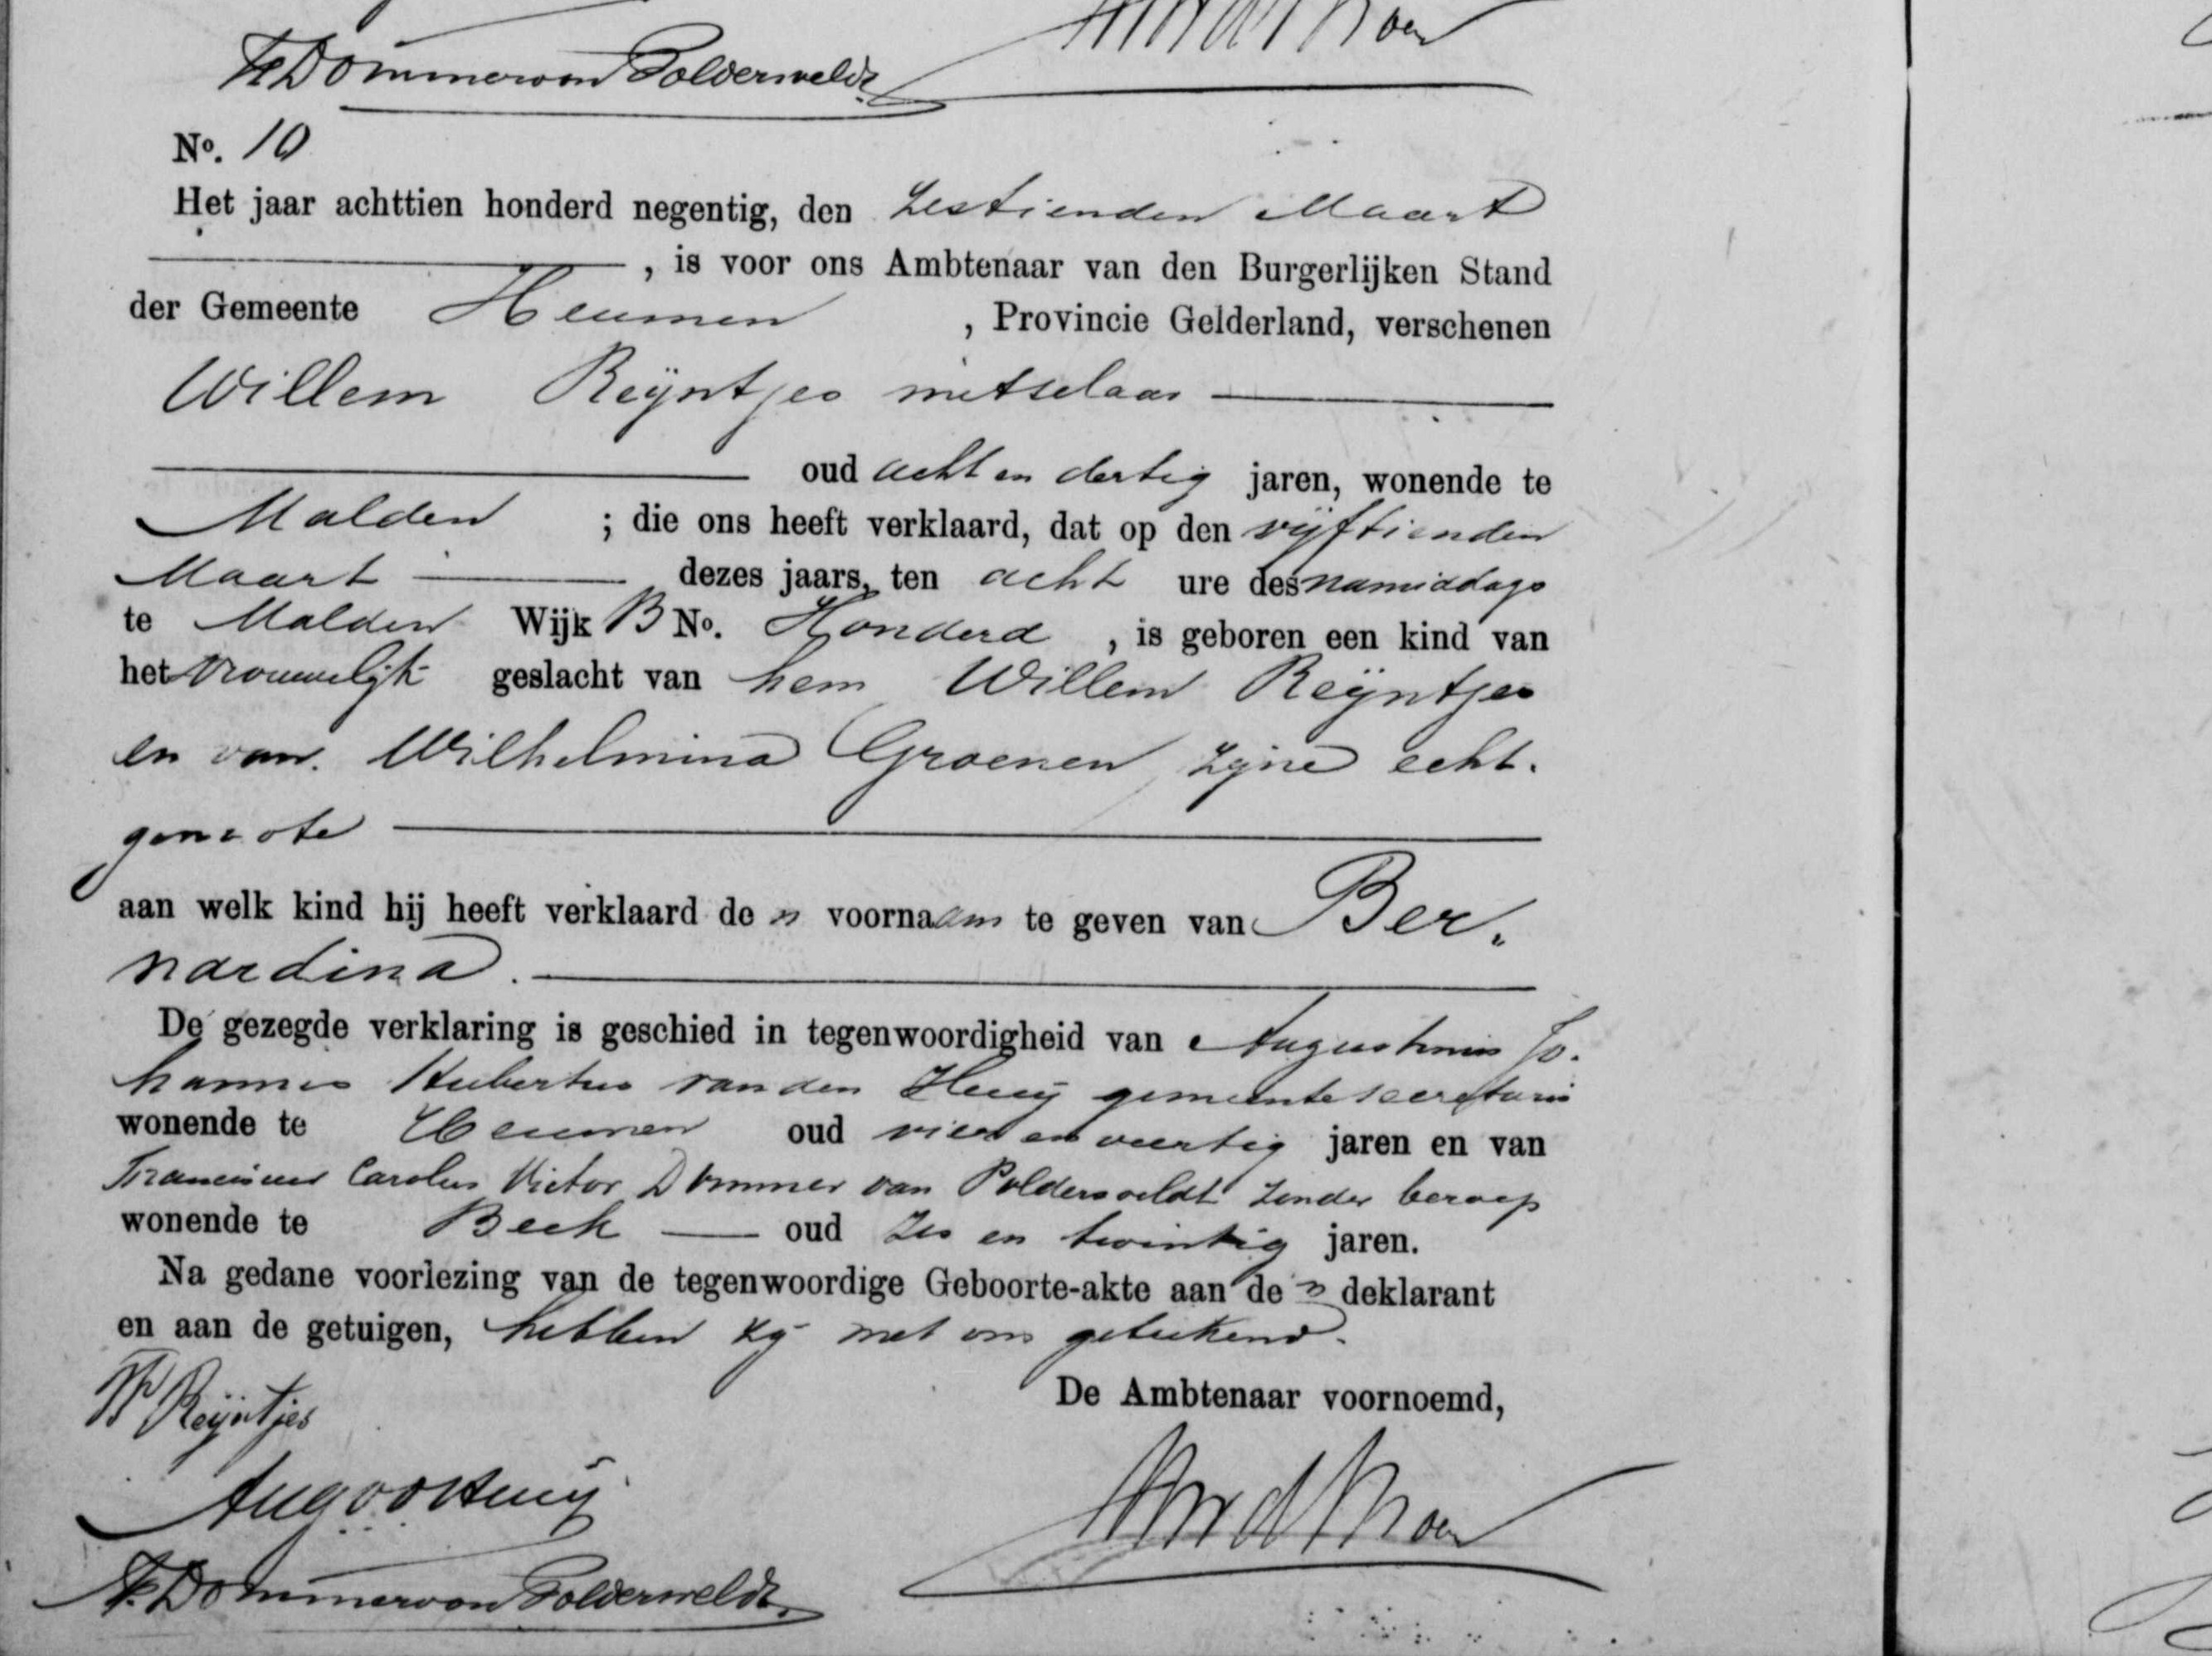 F. Dommer van Poldersveldt
No. 10
Het jaar achttien honderd negentig, den Zestienden Maart
, is voor ons Ambtenaar van den Burgerlijken Stand
der Gemeente Heumen , Provincie Gelderland, verschenen
Willem Reijntjes metselaar
oud acht en dertig jaren, wonende te
Malden ; die ons heeft verklaard, dat op den vijftienden
Maart dezes jaars, ten acht ure des namiddags
te Malden Wijk B No. Honderd , is geboren een kind van
het vrouwelijk geslacht van hem Willem Reijntjes
en van Wilhelmina Groenen zijne echt-
genoote
aan welk kind hij heeft verklaard den voornaam te geven van Ber-
nardina.
De gezegde verklaring is geschied in tegenwoordigheid van Augustinus Jo-
hannes Hubertus van den Heuij gemeentesecretaris
wonende te Heumen oud vier en veertig jaren en van
Franciscus Carolus Victor Dommer van Poldersveldt zonder beroep
wonende te Beek oud zes en twintig jaren.
Na gedane voorlezing van de tegenwoordige Geboorte-akte aan den deklarant
en aan de getuigen, hebben zij met ons geteekend.
W Reijntjes
De Ambtenaar voornoemd,
F. Dommer van Poldersveldt